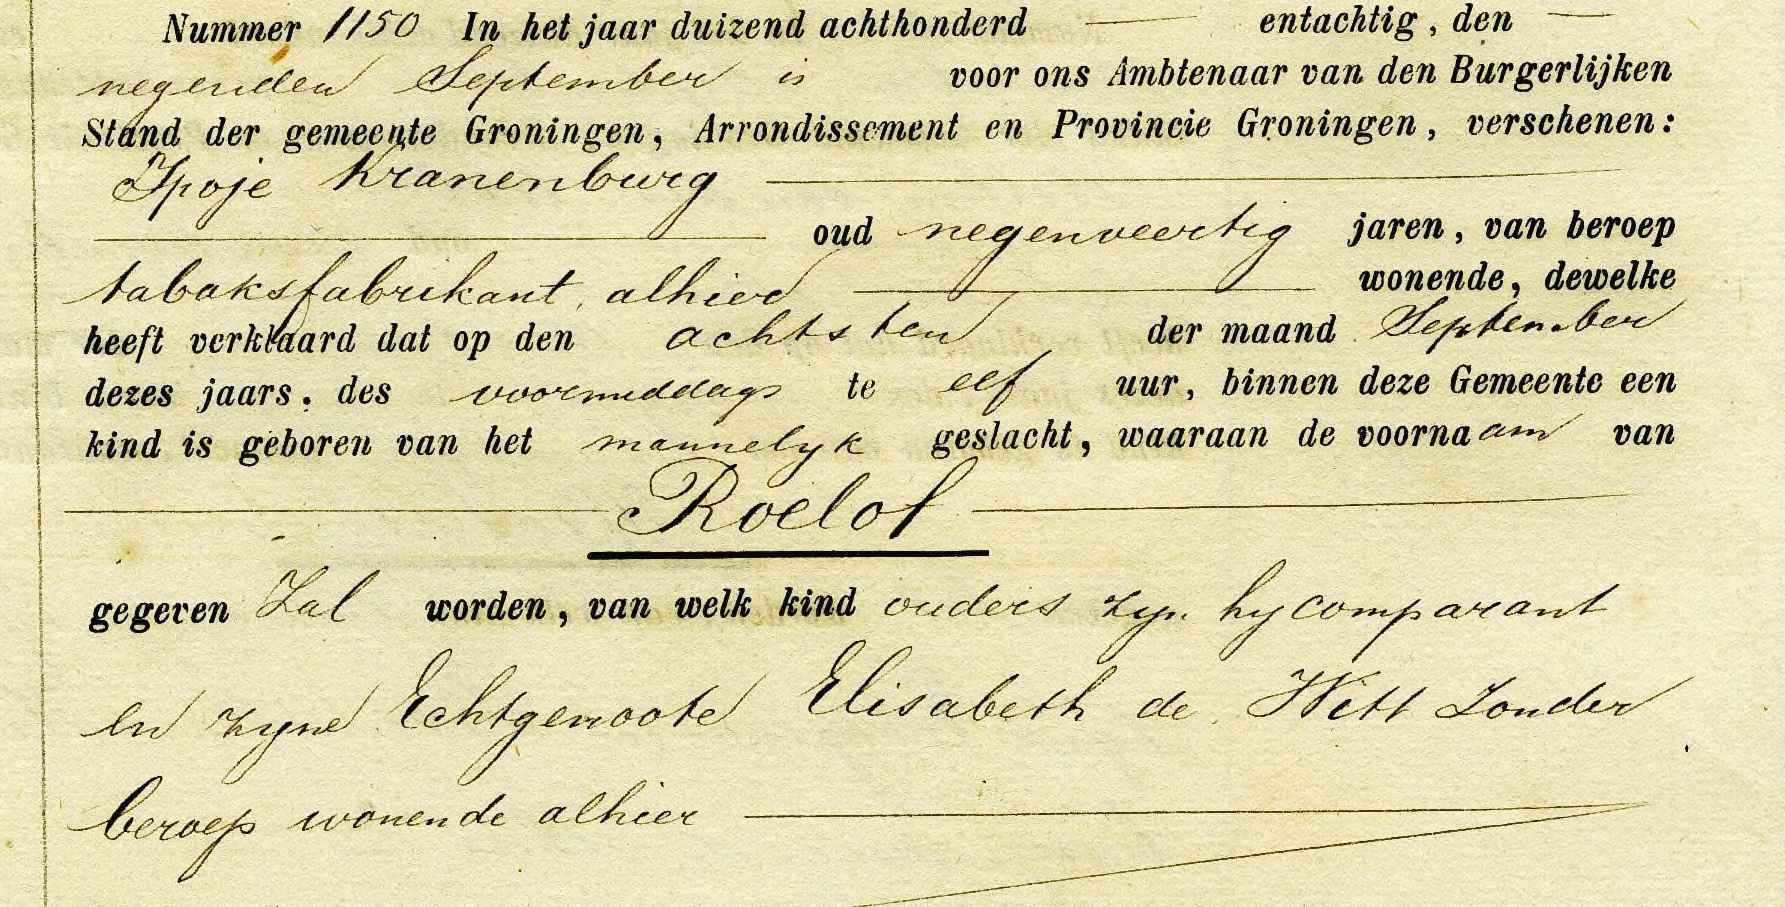 Nummer 1150 In het jaar duizend achthonderd — entachtig, den —
negenden September is voor ons Ambtenaar van den Burgerlijken
Stand der gemeente Groningen, Arrondissement en Provincie Groningen, verschenen:
Kranenburg
oud negenveertig jaren, van beroep
tabaksfabrikant, alhier wonende, dewelke
heeft verklaard dat op den achtsten der maand September
dezes jaars, des voormiddags te elf uur, binnen deze Gemeente een
kind is geboren van het mannelyk geslacht, waaraan de voornaam van
Roelof
gegeven Zal worden, van welk kind ouders zyn hy comparant
en zyne Echtgenoote Elisabeth de Witt Zonder
beroep wonende alhier